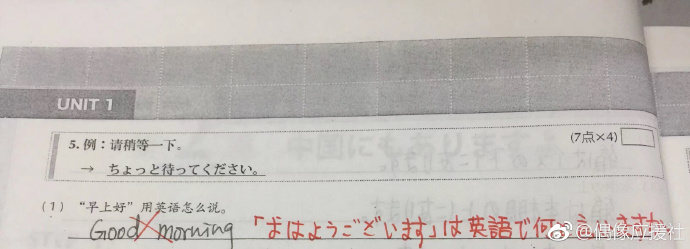 UNIT 1
5. 例：请稍等一下。 (7点×4)
→ ちょっと待ってください。
(1) “早上好”用英语怎么说。
Good morning 「おはようございます」は英語で何といいますか
@偶像应援社